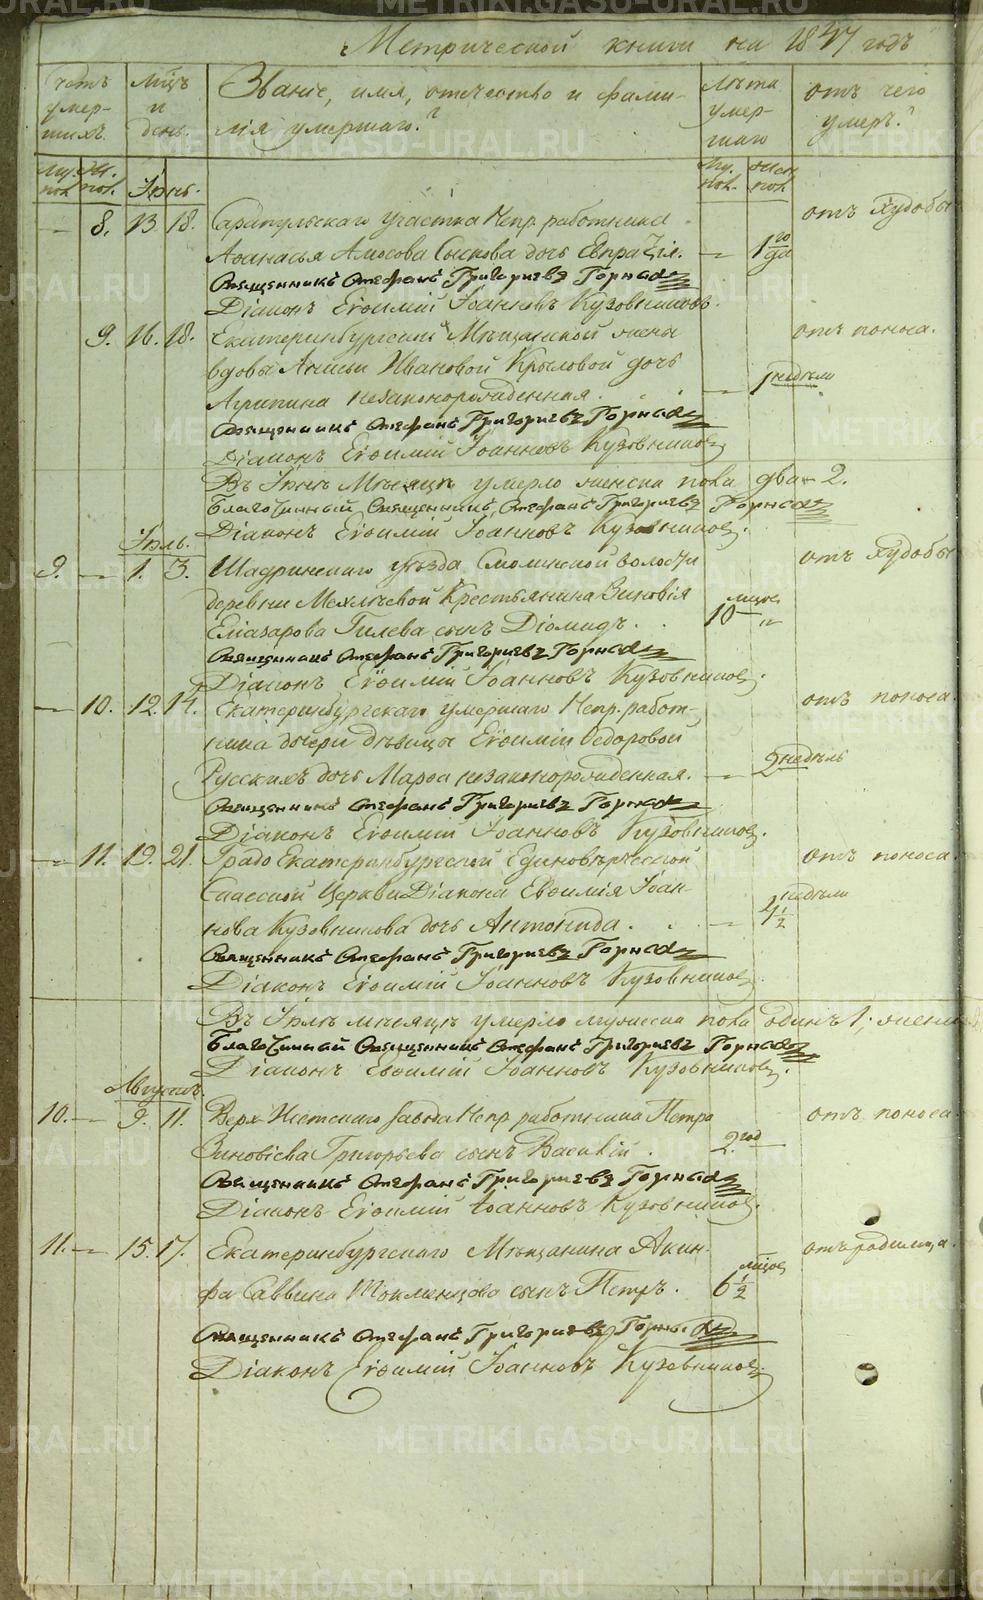 Метрической книги на 1847 годъ
Счетъ умер-шихъ.
Мѣцъ и день.
Званіе, имя, отечество и фами-
лія умершаго?
Лѣта умер-шаго
отъ чего умеръ?
Му. пол. Же. пол. Іюнь. Му. пол. Жен. пол.
8. 13. 18. Сарапульскаго участка Непр. работника отъ худобы
Аѳанасья Амосова Соскова дочь Евпраксія. 1 го да
Священникъ Стефанъ Григорьевъ Горныхъ
Діаконъ Евѳимій Іоанновъ Кузовниковъ.
9. 16. 18. Екатеринбургской Мѣщанской жены отъ поноса.
вдовы Анисьи Ивановой Крыловой дочь
Агрипина незаконорожденная. 1 недѣли
Священникъ Стефанъ Григорьевъ Горныхъ
Діаконъ Евѳимій Іоанновъ Кузовниковъ
Въ Іюнѣ Мѣсяцѣ умерло женска пола два 2.
Благочинный Священникъ Стефанъ Григорьевъ Горныхъ
Діаконъ Евѳимій Іоанновъ Кузовниковъ.
Іюль.
9. 1. 3. Шадринскаго уѣзда Смолинской волости отъ худобы
деревни Крестьянина Зиновія
Еліазарова Гилева сынъ Діомидъ. 10 мѣцов
Священникъ Стефанъ Григорьевъ Горныхъ
Діаконъ Евѳимій Іоанновъ Кузовниковъ.
10. 12. 14. Екатеринбургскаго умершаго Непр. работ- отъ поноса.
ника дочери дѣвицы Евѳиміи Ѳедоровой
Русскихъ дочь Марѳа незаконорожденная. 2 недѣль
Священникъ Стефанъ Григорьевъ Горныхъ
Діаконъ Евѳимій Іоанновъ Кузовниковъ.
11. 19. 21. Градо Екатеринбургской Единовѣрческой отъ поноса.
Спасской Церкви Діакона Евѳимія Іоан-
нова Кузовникова дочь Антонида. 4 1/2 недѣли
Священникъ Стефанъ Григорьевъ Горныхъ
Діаконъ Евѳимій Іоанновъ Кузовниковъ
Въ Іюлѣ мѣсяцѣ умерло мужеска пола одинъ 1; женска
Благочинный Священникъ Стефанъ Григорьевъ Горныхъ
Діаконъ Евѳимій Іоанновъ Кузовниковъ.
Августъ.
10. 9. 11. Верх Исетскаго завода Непр. работника Петра отъ поноса.
Зиновіева Григорьева сынъ Василій. 2 год
Священникъ Стефанъ Григорьевъ Горныхъ
Діаконъ Евѳимій Іоанновъ Кузовниковъ.
11. 15. 17. Екатеринбургскаго Мѣщанина Акин- отъ родимца.
фа Саввина Токменцова сынъ Петръ. 6 1/2 мѣцов
Священникъ Стефанъ Григорьевъ Горныхъ
Діаконъ Евѳимій Іоанновъ Кузовниковъ.
METRIKI.GASO-URAL.RU